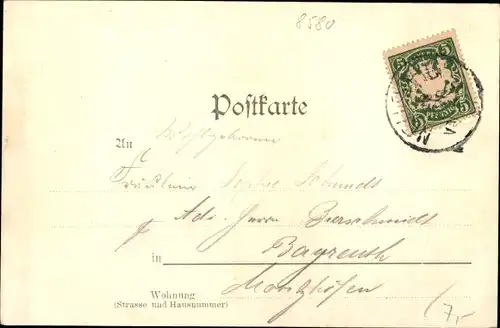 8580
5 5
PFENNIG
5 5
Postkarte
An Wohlgeboren
Fräulein Sophie Schmidt
Adr. Herrn Bierschmidt
in Bayreuth
Wohnung
(Strasse und Hausnummer)
7,-